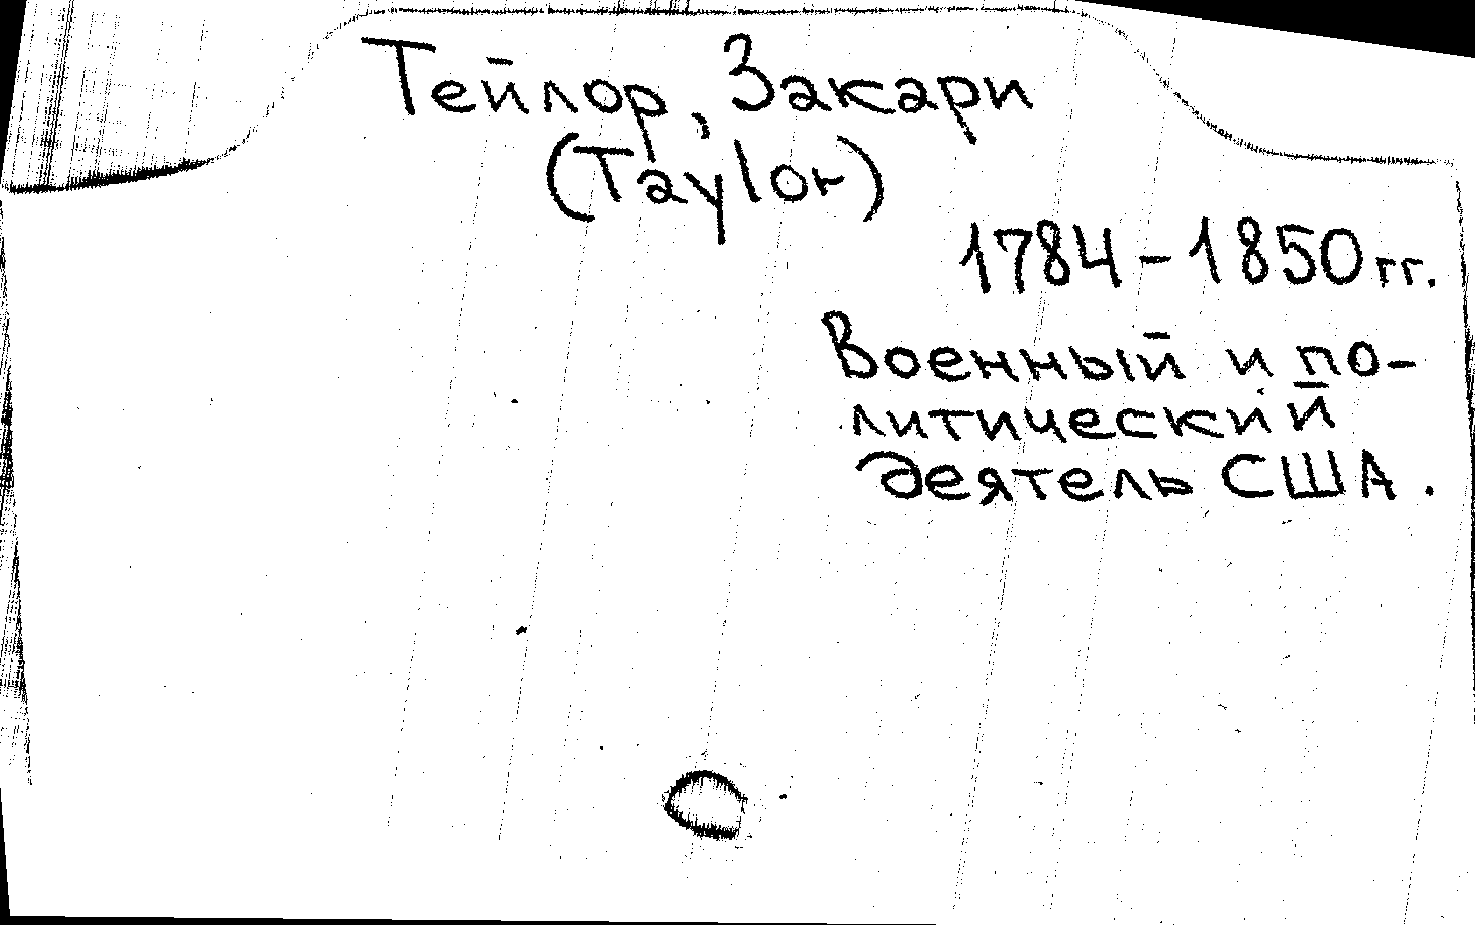 Тейлор, Закари
(Taylor)
1784 - 1850 гг.
Военный и по-
литический
деятель США.